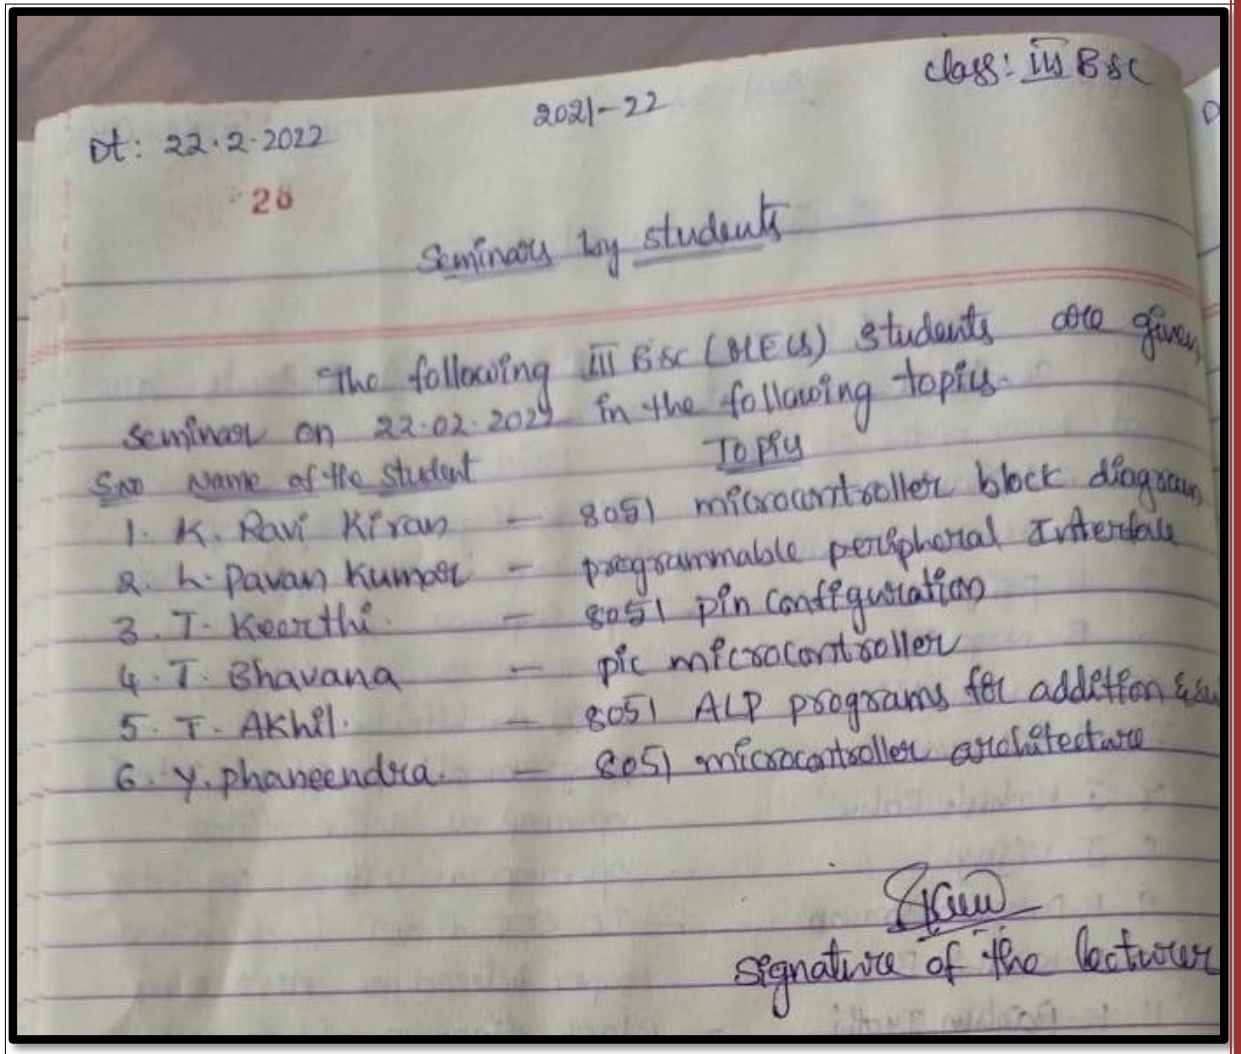 class: III BSC
2021-22
Dt: 22.2.2022
28
Seminars by students
The following III BSC (MECs) students are given
seminar on 22.02.2022 in the following topics.
S.no Name of the student Topics
1. K. Ravi Kiran - 8051 microcontroller block diagram
2. L. Pavan Kumar - programmable peripheral Interface
3. T. Keerthi. - 8051 pin configuration
4. T. Bhavana - pic microcontroller
5. T. Akhil. - 8051 ALP programs for addition &
6. Y. phaneendra. - 8051 microcontroller architecture
signature of the lecturer